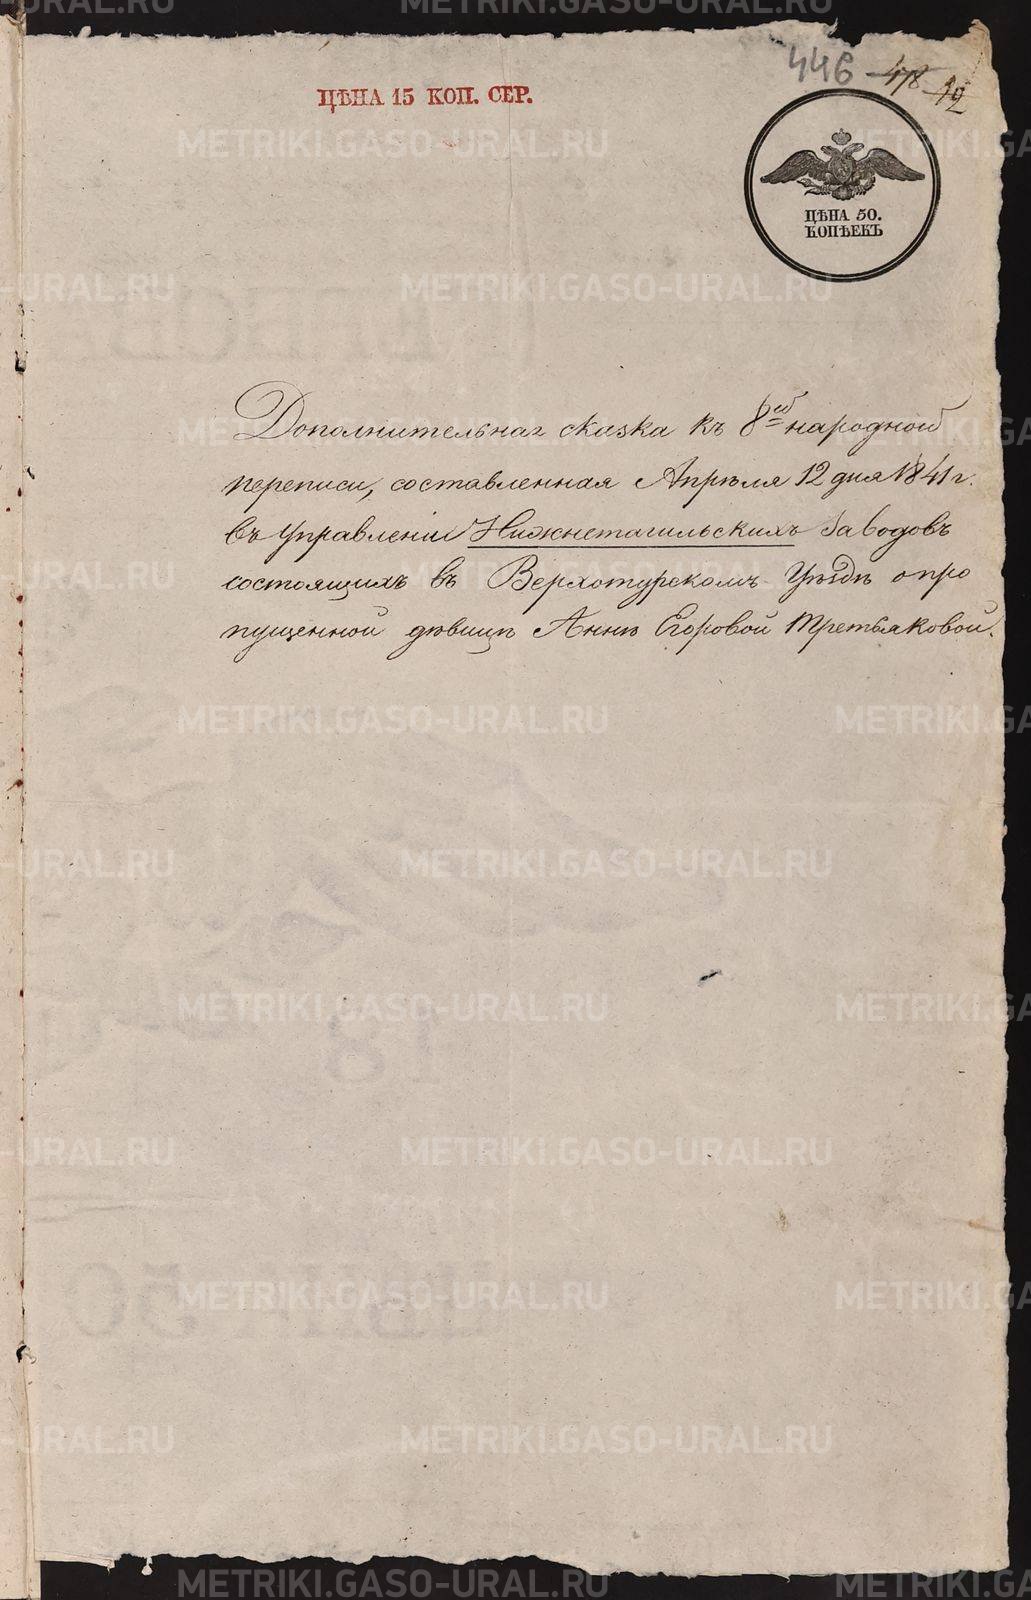 446 478 12
ЦѢНА 15 КОП. СЕР.
ЦѢНА 50.
КОПѢЕКЪ
Дополнительная сказка къ 8ей народной
переписи, составленная Апрѣля 12 дня 1841 г.
въ Управленіи Нижнетагильскихъ Заводовъ
состоящихъ въ Верхотурскомъ Уѣздѣ о про
пущенной дѣвицѣ Аннѣ Егоровой Третьяковой.
METRIKI.GASO-URAL.RU